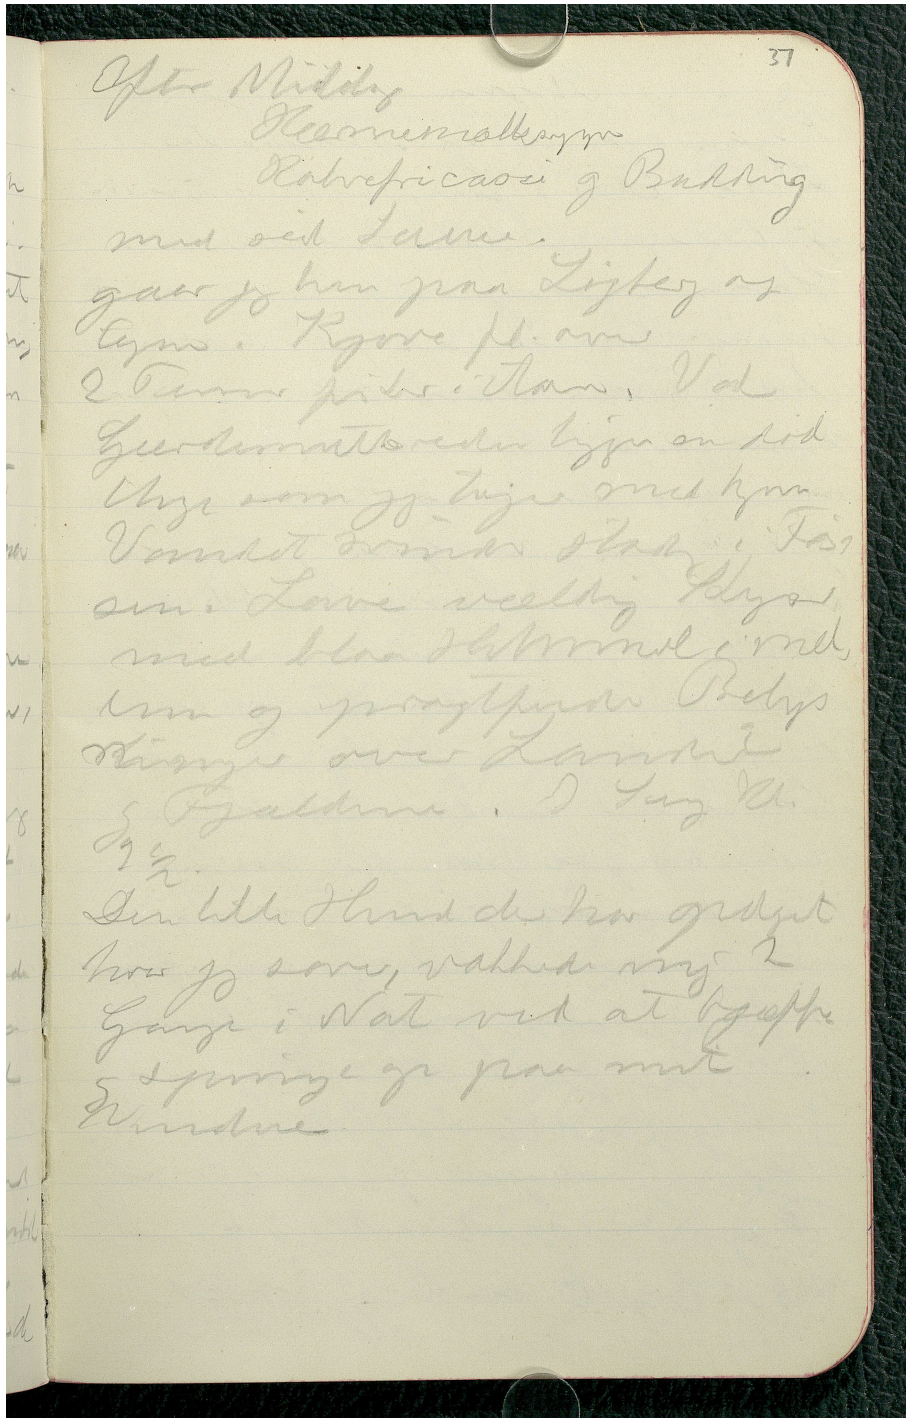 37
Efter Middag
Kærnemælkssuppe
Kalvefricasse og Budding
med rød Sauce.
gaar jeg hen paa Lyngberg og
Kjove fl. over
2 Terner fisker i Aaen. Ved
ligger en død
Unge som jeg tager med hjem
Vandet svinder stadig i Fos
sen. Lave vældig Skyer
med blaa Himmel i mel
lem og pragtfulde Belys
ninger over Landet
og Fjældene. I Seng Kl.
9 ½.
Den lille Hund der har opdaget
hvor jeg sover, vækkede mig 2
Gange i Nat ved at bjæffe
og springe op paa mit
Vindue